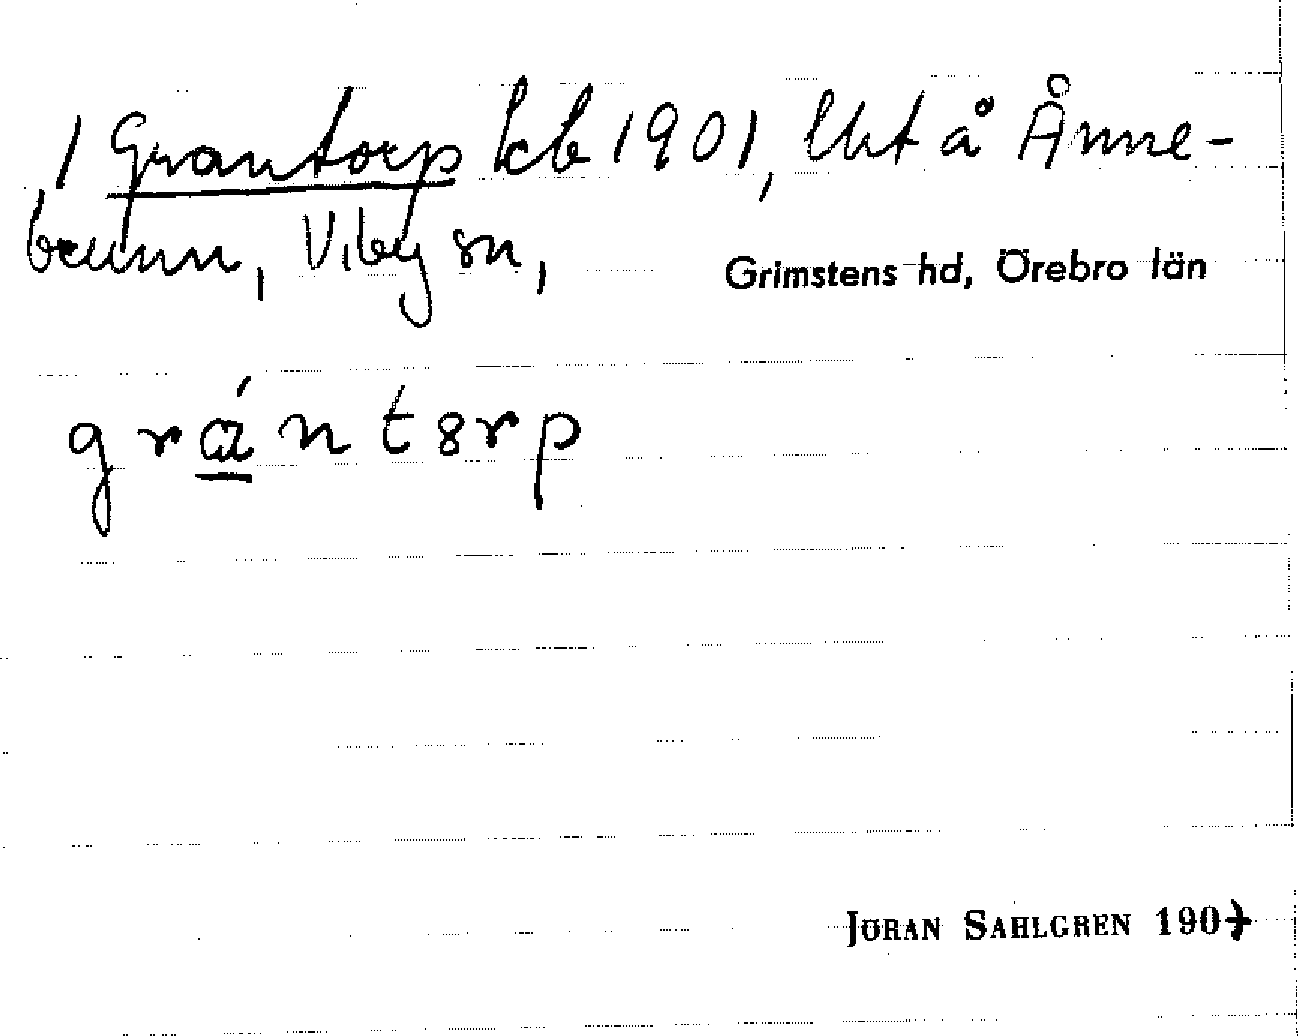 / Grantorp kb 1901, lht å Ånne-
brunn, Viby sn, Grimstens hd, Örebro län
grántɜrp
JÖRAN SAHLGREN 1907